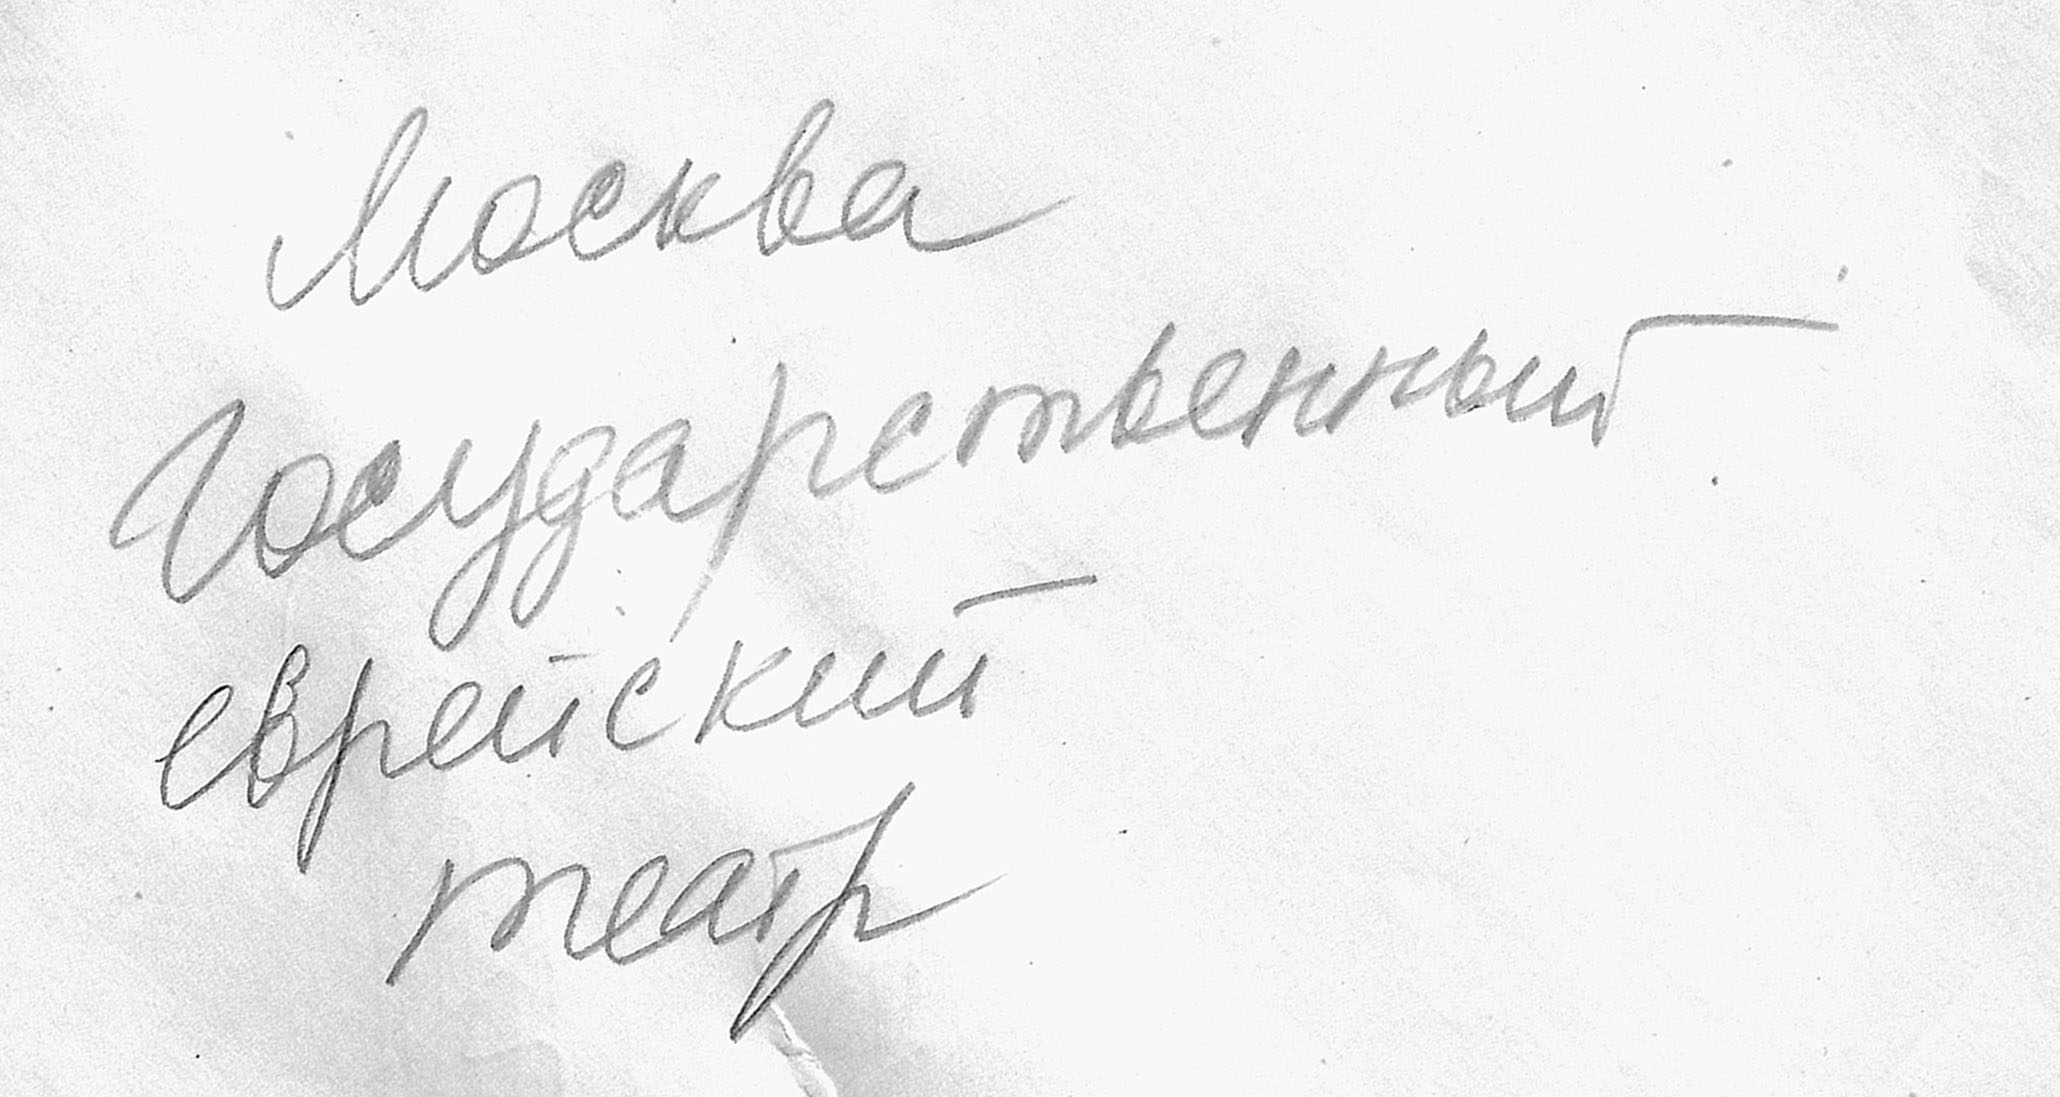 Москва
Государственный
еврейский
театр